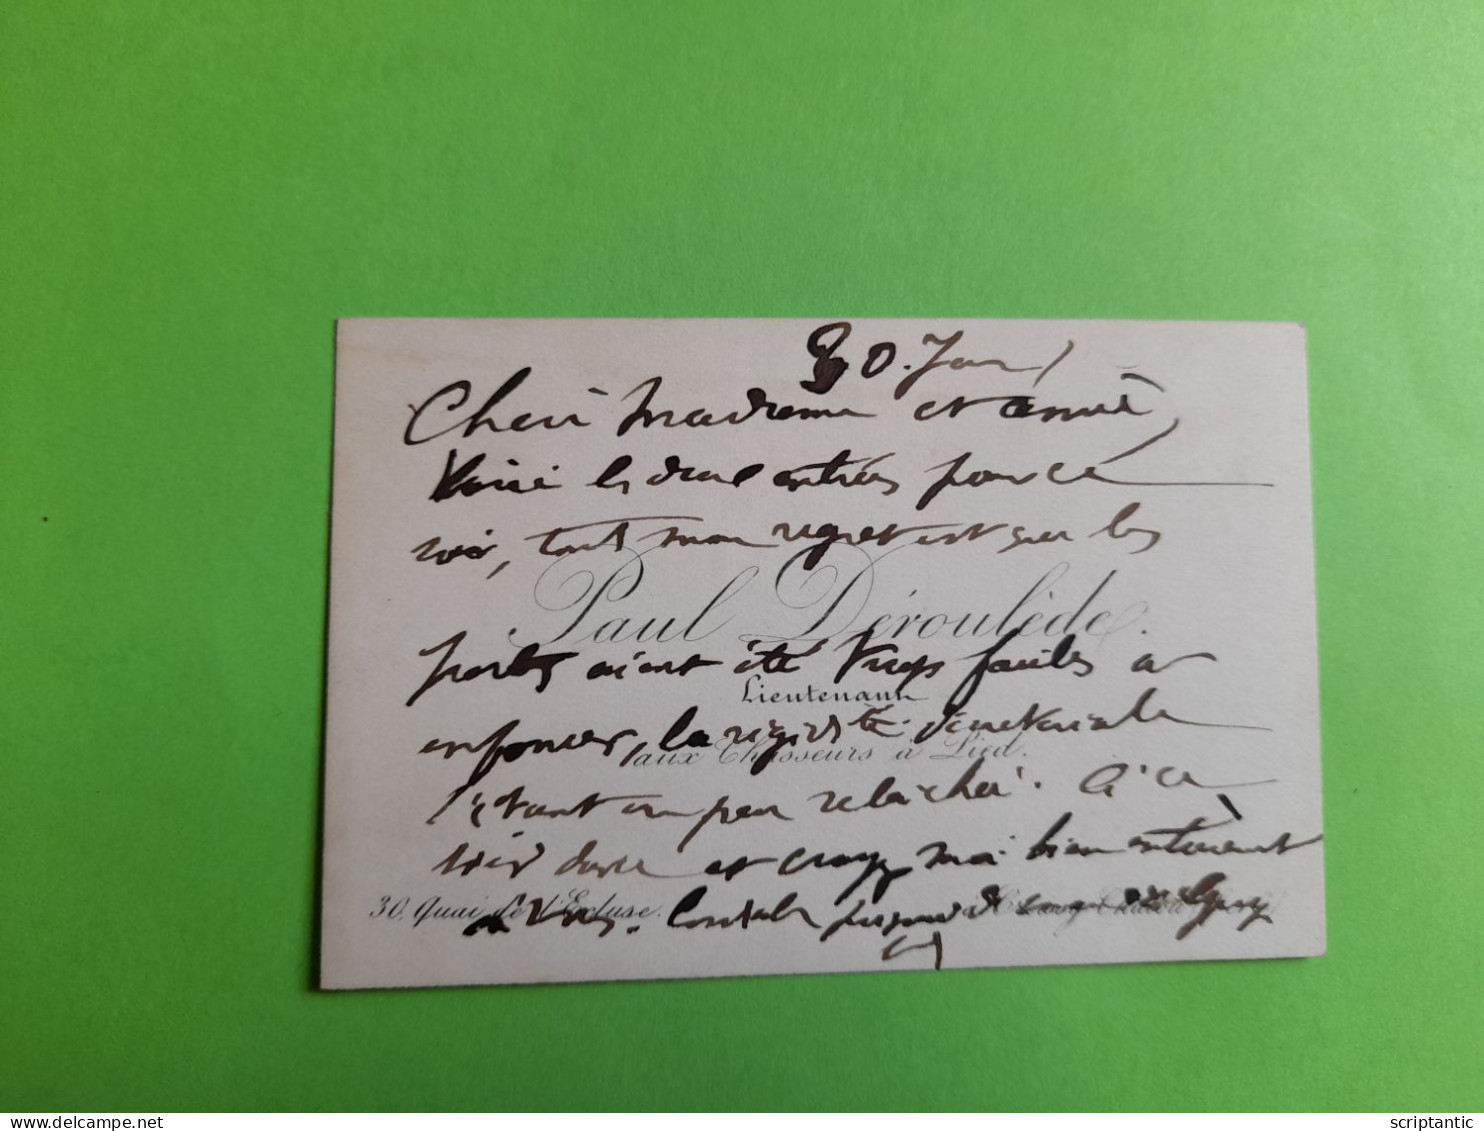 30. Jan
Chère Madame et amie,
Voici les deux entrées pour ce
soir, tout mon regret est que les
Paul Déroulède.
portes aient été trop faciles à
Lieutenant
enfoncer, la rigidité directoriale
aux Chasseurs à Pied.
s'étant un peu relachée. A ce
soir donc et croyez moi bien entièrement
30, Quai de l'Ecluse.
à vous.
scriptantic